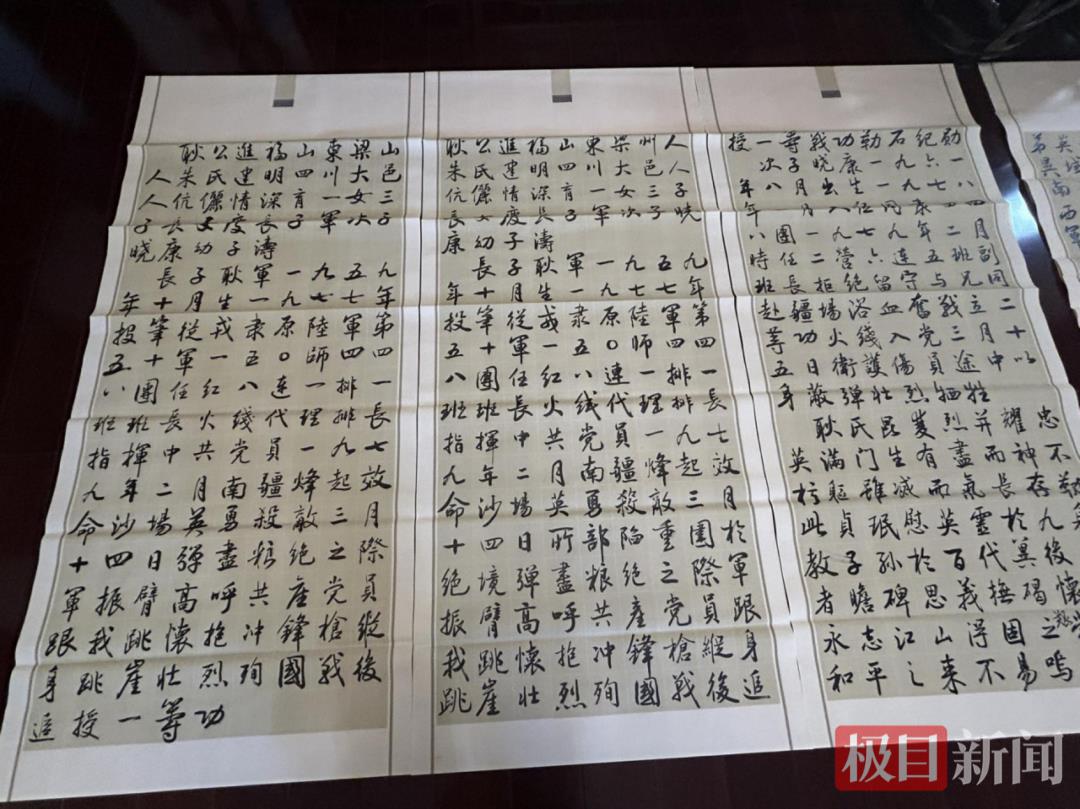 耿公進福山東梁山
人朱氏建明四川大邑
人伉儷情深育一女三
子長女度長子軍次子
曉康幼子濤
長子耿軍一九五九
年十月生一九七七年
投筆從戎隸原陸軍第
五十軍一五〇師四四
八團任紅八連一排一
班班長火線代理排長
指揮中共黨員一九七
九年二月南疆烽起效
命沙場英勇殺敵三月
十四日彈盡糧絕之際
軍振臂高呼共產黨員
跟我跳懷抱冲鋒槍縱
身跳崖壯烈殉國戰後
追授一等功
耿公進福山東梁州人
朱氏建明四川大邑人
伉儷情深育一女三子
長女度長子軍次子曉
康幼子濤
長子耿軍一九五九
年十月生一九七七年
投筆從戎隸原陸軍第
五十軍一五〇師四四
八團任紅八連一排一
班班長火線代理排長
指揮中共黨員一九七
九年二月南疆烽起效
命沙場英勇殺敵三月
十四日所部陷重圍於
絕境彈盡糧絕之際軍
振臂高呼共產黨員跟
我跳懷抱冲鋒槍縱身
跳崖壯烈殉國戰後追
授一等戰功勒石紀勛
次子曉康生一九六一
年八月
時任一營六連五班副
班長拒絕留守與兄同
赴疆場浴血奮戰立二
等功火綫入党三月十
五日衛護傷員途中以
身蔽彈壯烈犧牲
耿氏昆季烈并耀忠
英滿門生有盡而神不
朽軀雖滅而氣長存勒
此貞珉慰英靈於九
教子孫於百代冀後
者瞻碑思義撫碣懷
永志江山得固之
和平之來不易嗚
極目新闻